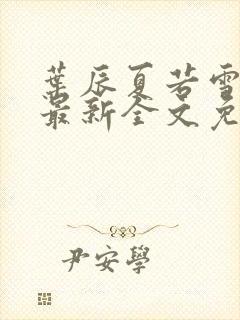 葉辰夏若雪
最新全文免
尹安學